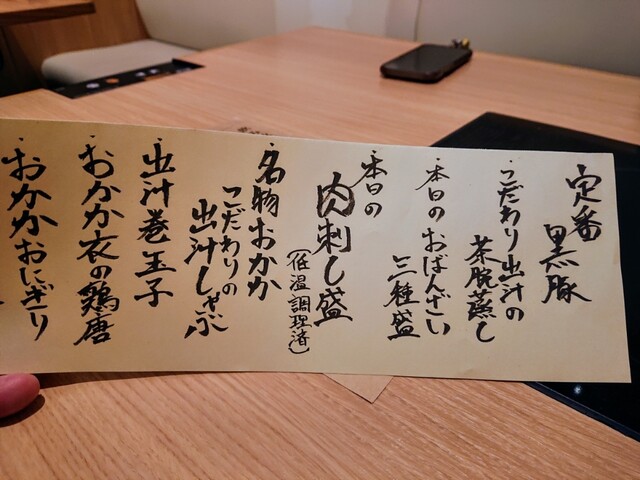 定番
黒豚
・こだわり出汁の
茶腕蒸し
・本日のおばんざい
三種盛
・本日の
肉刺し盛
(低温調理済)
・名物おかか
こだわりの
出汁しゃぶ
・出汁巻玉子
・おかか衣の鶏唐
・おかかおにぎり